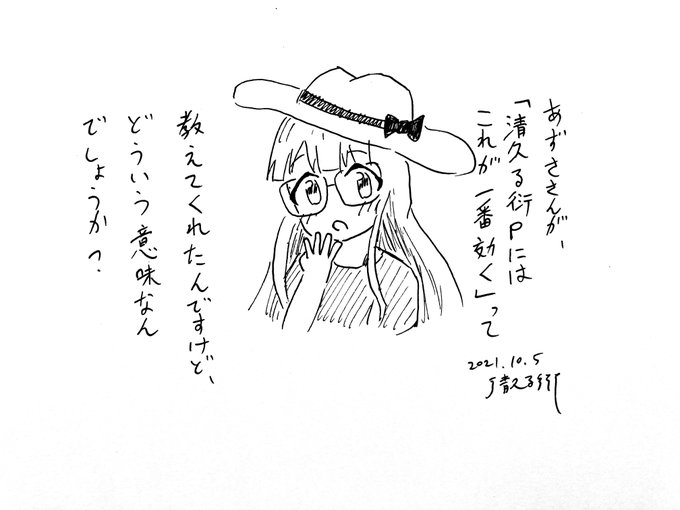 あずささんが、
「清久る衍Pには
これが一番効く」って
教えてくれたんですけど、
どういう意味なん
でしょうか?
2021.10.5
清久る衍